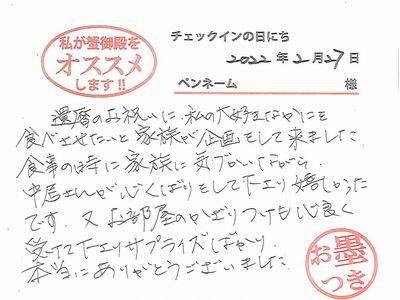 私が蟹御殿を
オススメ
します!!
チェックインの日にち
2022年2月27日
ペンネーム 様
還暦のお祝いに、私の大好きなかにを
食べさせたいと家族が企画をして来ました。
食事の時に家族に気づかいしながら
中居さんが心くばりをして下さり嬉しかった
です。又お部屋のかざりつけも心良く
受けて下さりサプライズばかり、
本当にありがとうございました
お墨
つき